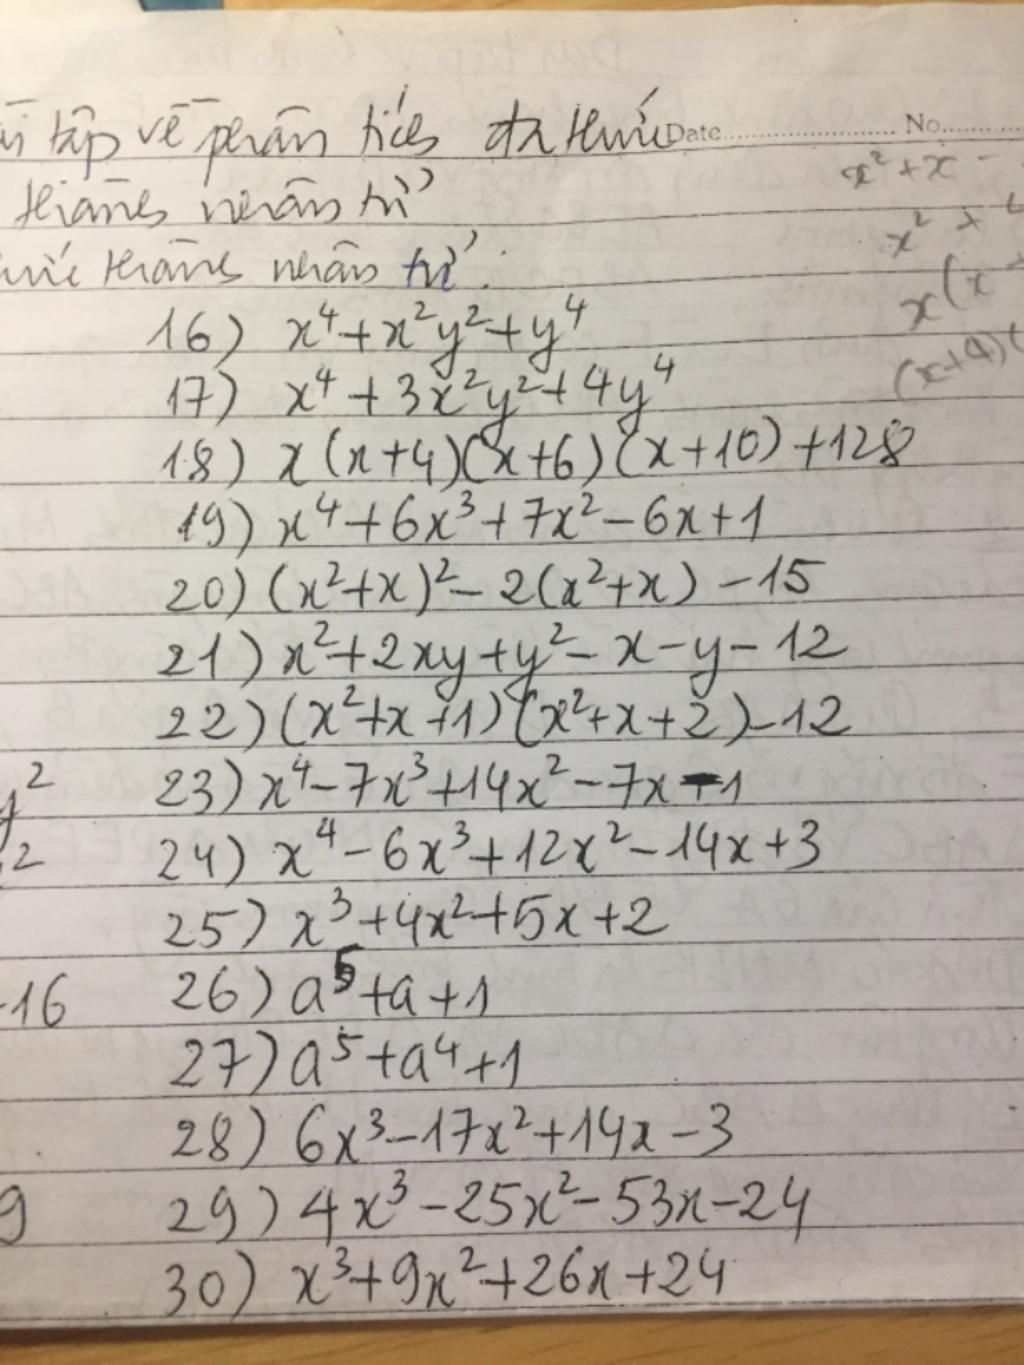 tập về phân tích đa thức Date No.
x² + x
thành nhân tử
x² +
thành nhân tử :
x(x
16) x⁴ + x²y² + y⁴
(x+4)(
17) x⁴ + 3x²y² + 4y⁴
18) x(x+4)(x+6)(x+10) + 128
19) x⁴ + 6x³ + 7x² - 6x + 1
20) (x²+x)² - 2(x²+x) - 15
21) x² + 2xy + y² - x - y - 12
22) (x²+x+1)(x²+x+2) - 12
y² 23) x⁴ - 7x³ + 14x² - 7x - 1
2 24) x⁴ - 6x³ + 12x² - 14x + 3
25) x³ + 4x² + 5x + 2
-16 26) a⁵ + a + 1
27) a⁵ + a⁴ + 1
28) 6x³ - 17x² + 14x - 3
9 29) 4x³ - 25x² - 53x - 24
30) x³ + 9x² + 26x + 24